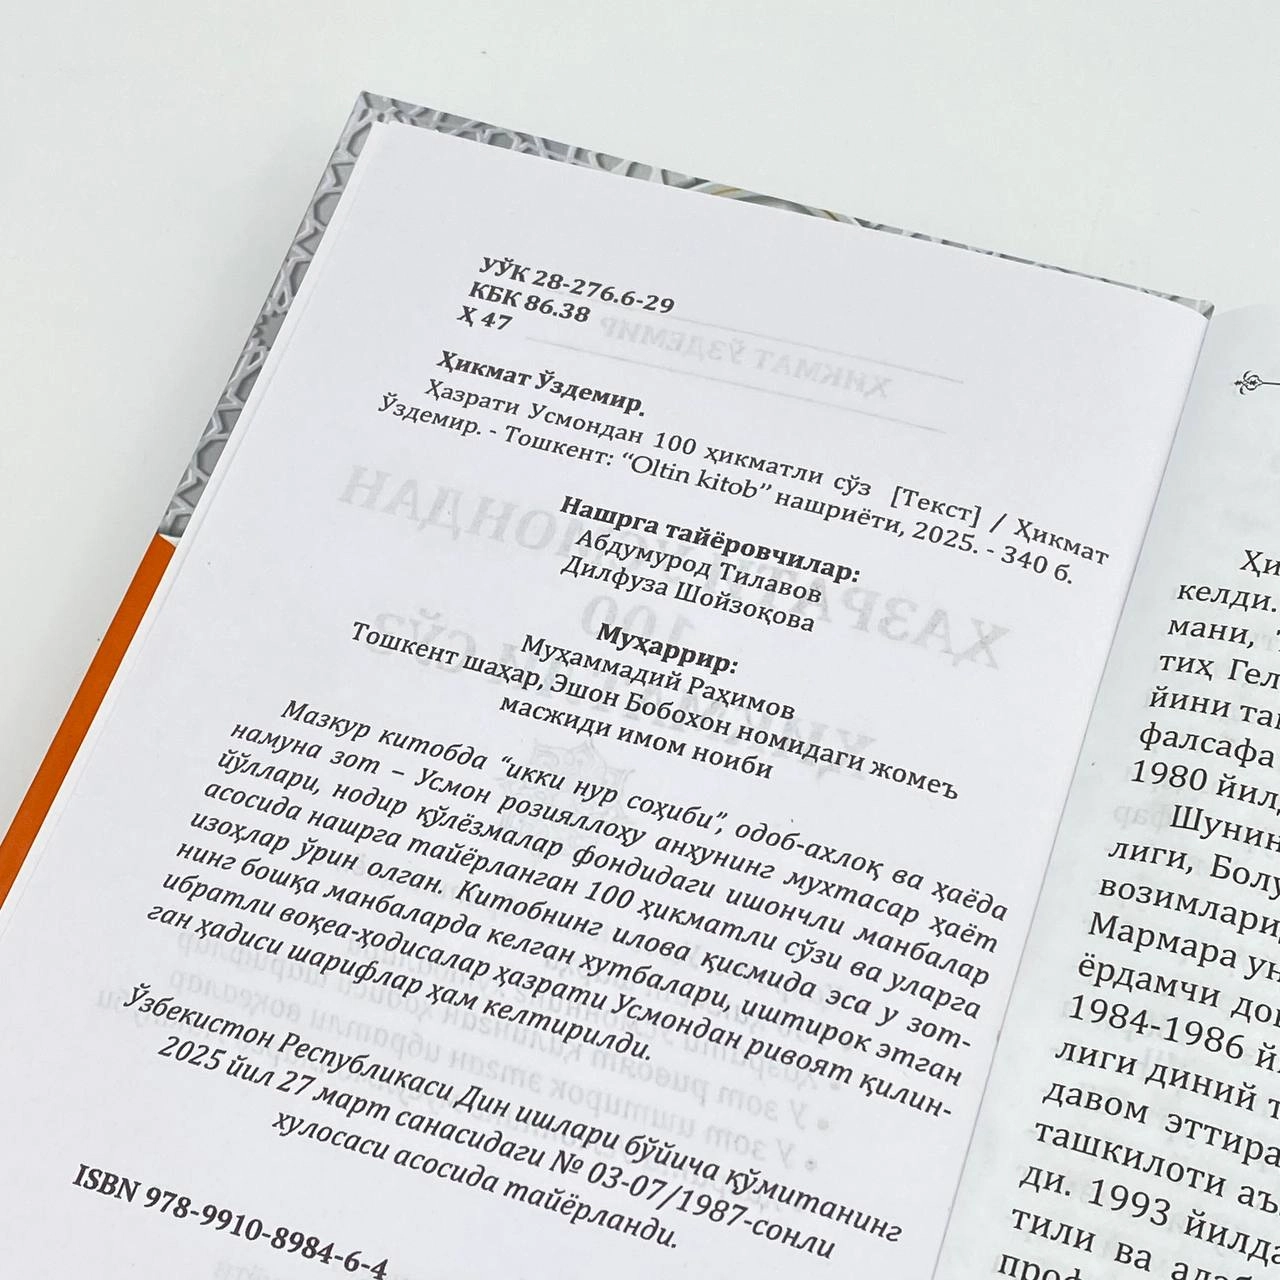 УЎК 28-276.6-29
КБК 86.38
Ҳ 47
Ҳикмат Ўздемир.
Ҳазрати Усмондан 100 ҳикматли сўз [Текст] / Ҳикмат
Ўздемир. - Тошкент: “Oltin kitob” нашриёти, 2025. - 340 б.
Нашрга тайёровчилар:
Абдумурод Тилавов
Дилфуза Шойзоқова
Муҳаррир:
Муҳаммадий Раҳимов
Тошкент шаҳар, Эшон Бобохон номидаги жомеъ
масжиди имом ноиби
Мазкур китобда “икки нур соҳиби”, одоб-ахлоқ ва ҳаёда
намуна зот – Усмон розияллоҳу анҳунинг мухтасар ҳаёт
йўллари, нодир қўлёзмалар фондидаги ишончли манбалар
асосида нашрга тайёрланган 100 ҳикматли сўзи ва уларга
изоҳлар ўрин олган. Китобнинг илова қисмида эса у зот-
нинг бошқа манбаларда келган хутбалари, иштирок этган
ибратли воқеа-ҳодисалар ҳазрати Усмондан ривоят қилин-
ган ҳадиси шарифлар ҳам келтирилди.
Ўзбекистон Республикаси Дин ишлари бўйича қўмитанинг
2025 йил 27 март санасидаги № 03-07/1987-сонли
хулосаси асосида тайёрланди.
ISBN 978-9910-8984-6-4
келди.
мани,
тиҳ
йини
фалсафа
1980
лиги,
Мармара
ёрдамчи
1984-1986
лиги диний
давом
ташкилоти
ди. 1993 йилда
тили ва